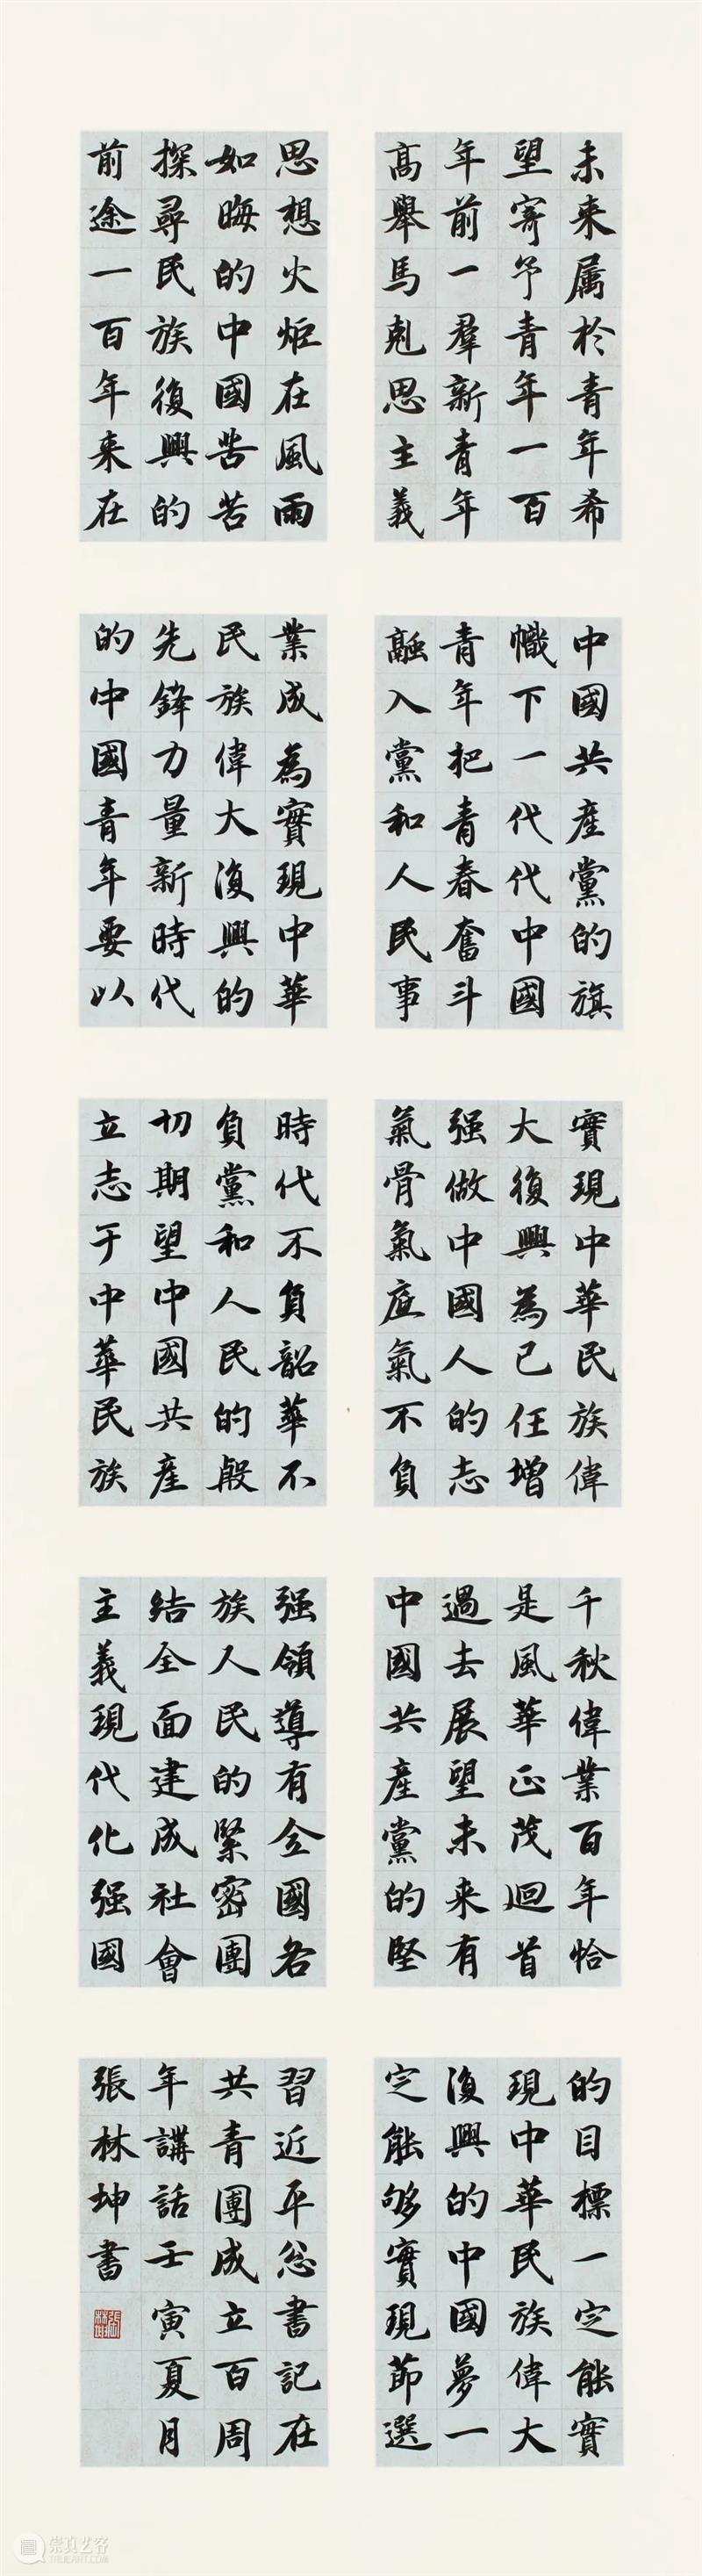 未来属於青年希
望寄予青年一百
年前一羣新青年
高舉馬尅思主義
思想火炬在風雨
如晦的中國苦苦
探尋民族復興的
前途一百年来在
中國共産黨的旗
幟下一代代中國
青年把青春奮斗
融入黨和人民事
業成為實現中華
民族偉大復興的
先鋒力量新時代
的中國青年要以
實現中華民族偉
大復興為己任增
强做中國人的志
氣骨氣底氣不負
時代不負韶華不
負黨和人民的殷
切期望中國共産
立志于中華民族
千秋偉業百年恰
是風華正茂迴首
過去展望未来有
中國共産黨的堅
强領導有全國各
族人民的緊密團
結全面建成社會
主義現代化强國
的目標一定能實
現中華民族偉大
復興的中國夢一
定能够實現節選
習近平總書記在
共青團成立百周
年講話壬寅夏月
張林坤書
崇真艺客
TRUEART.COM